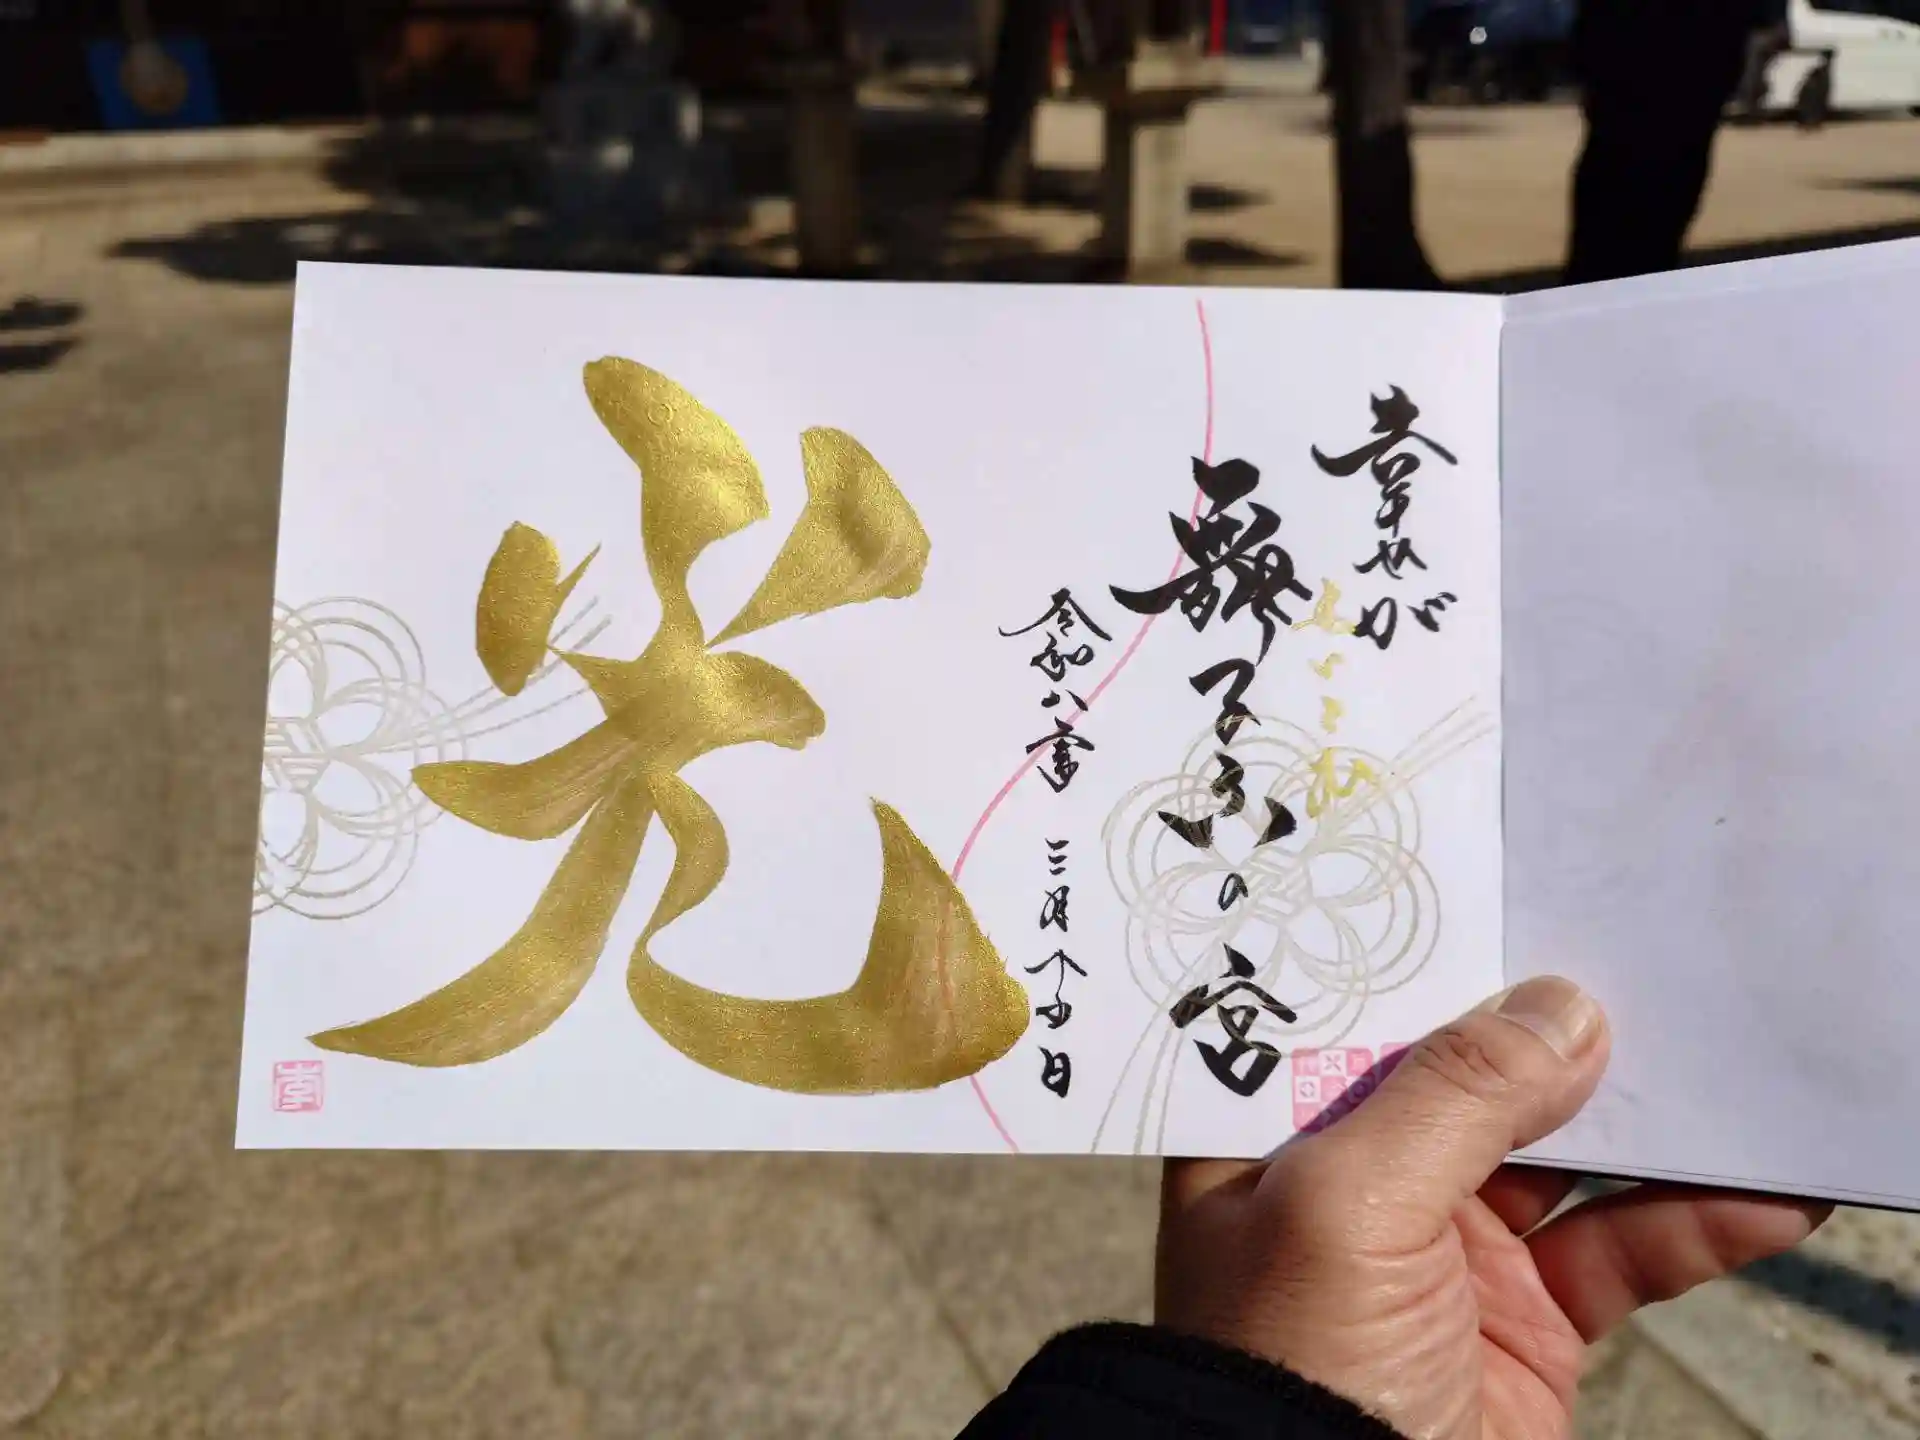 幸せが
まいこむ
舞子六の宮
令和八年 三月十五日
光
幸